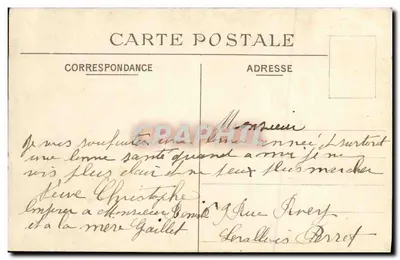 CARTE POSTALE
CORRESPONDANCE
ADRESSE
Monsieur
je vous souhaite une bonne année et surtout
une bonne santé quand a moi je ne
vis plus clair je ne peux plus marcher
Veuve Christophe
a Monsieur
et a la mère Gaillet
9 Rue Rivay
Levallois Perret